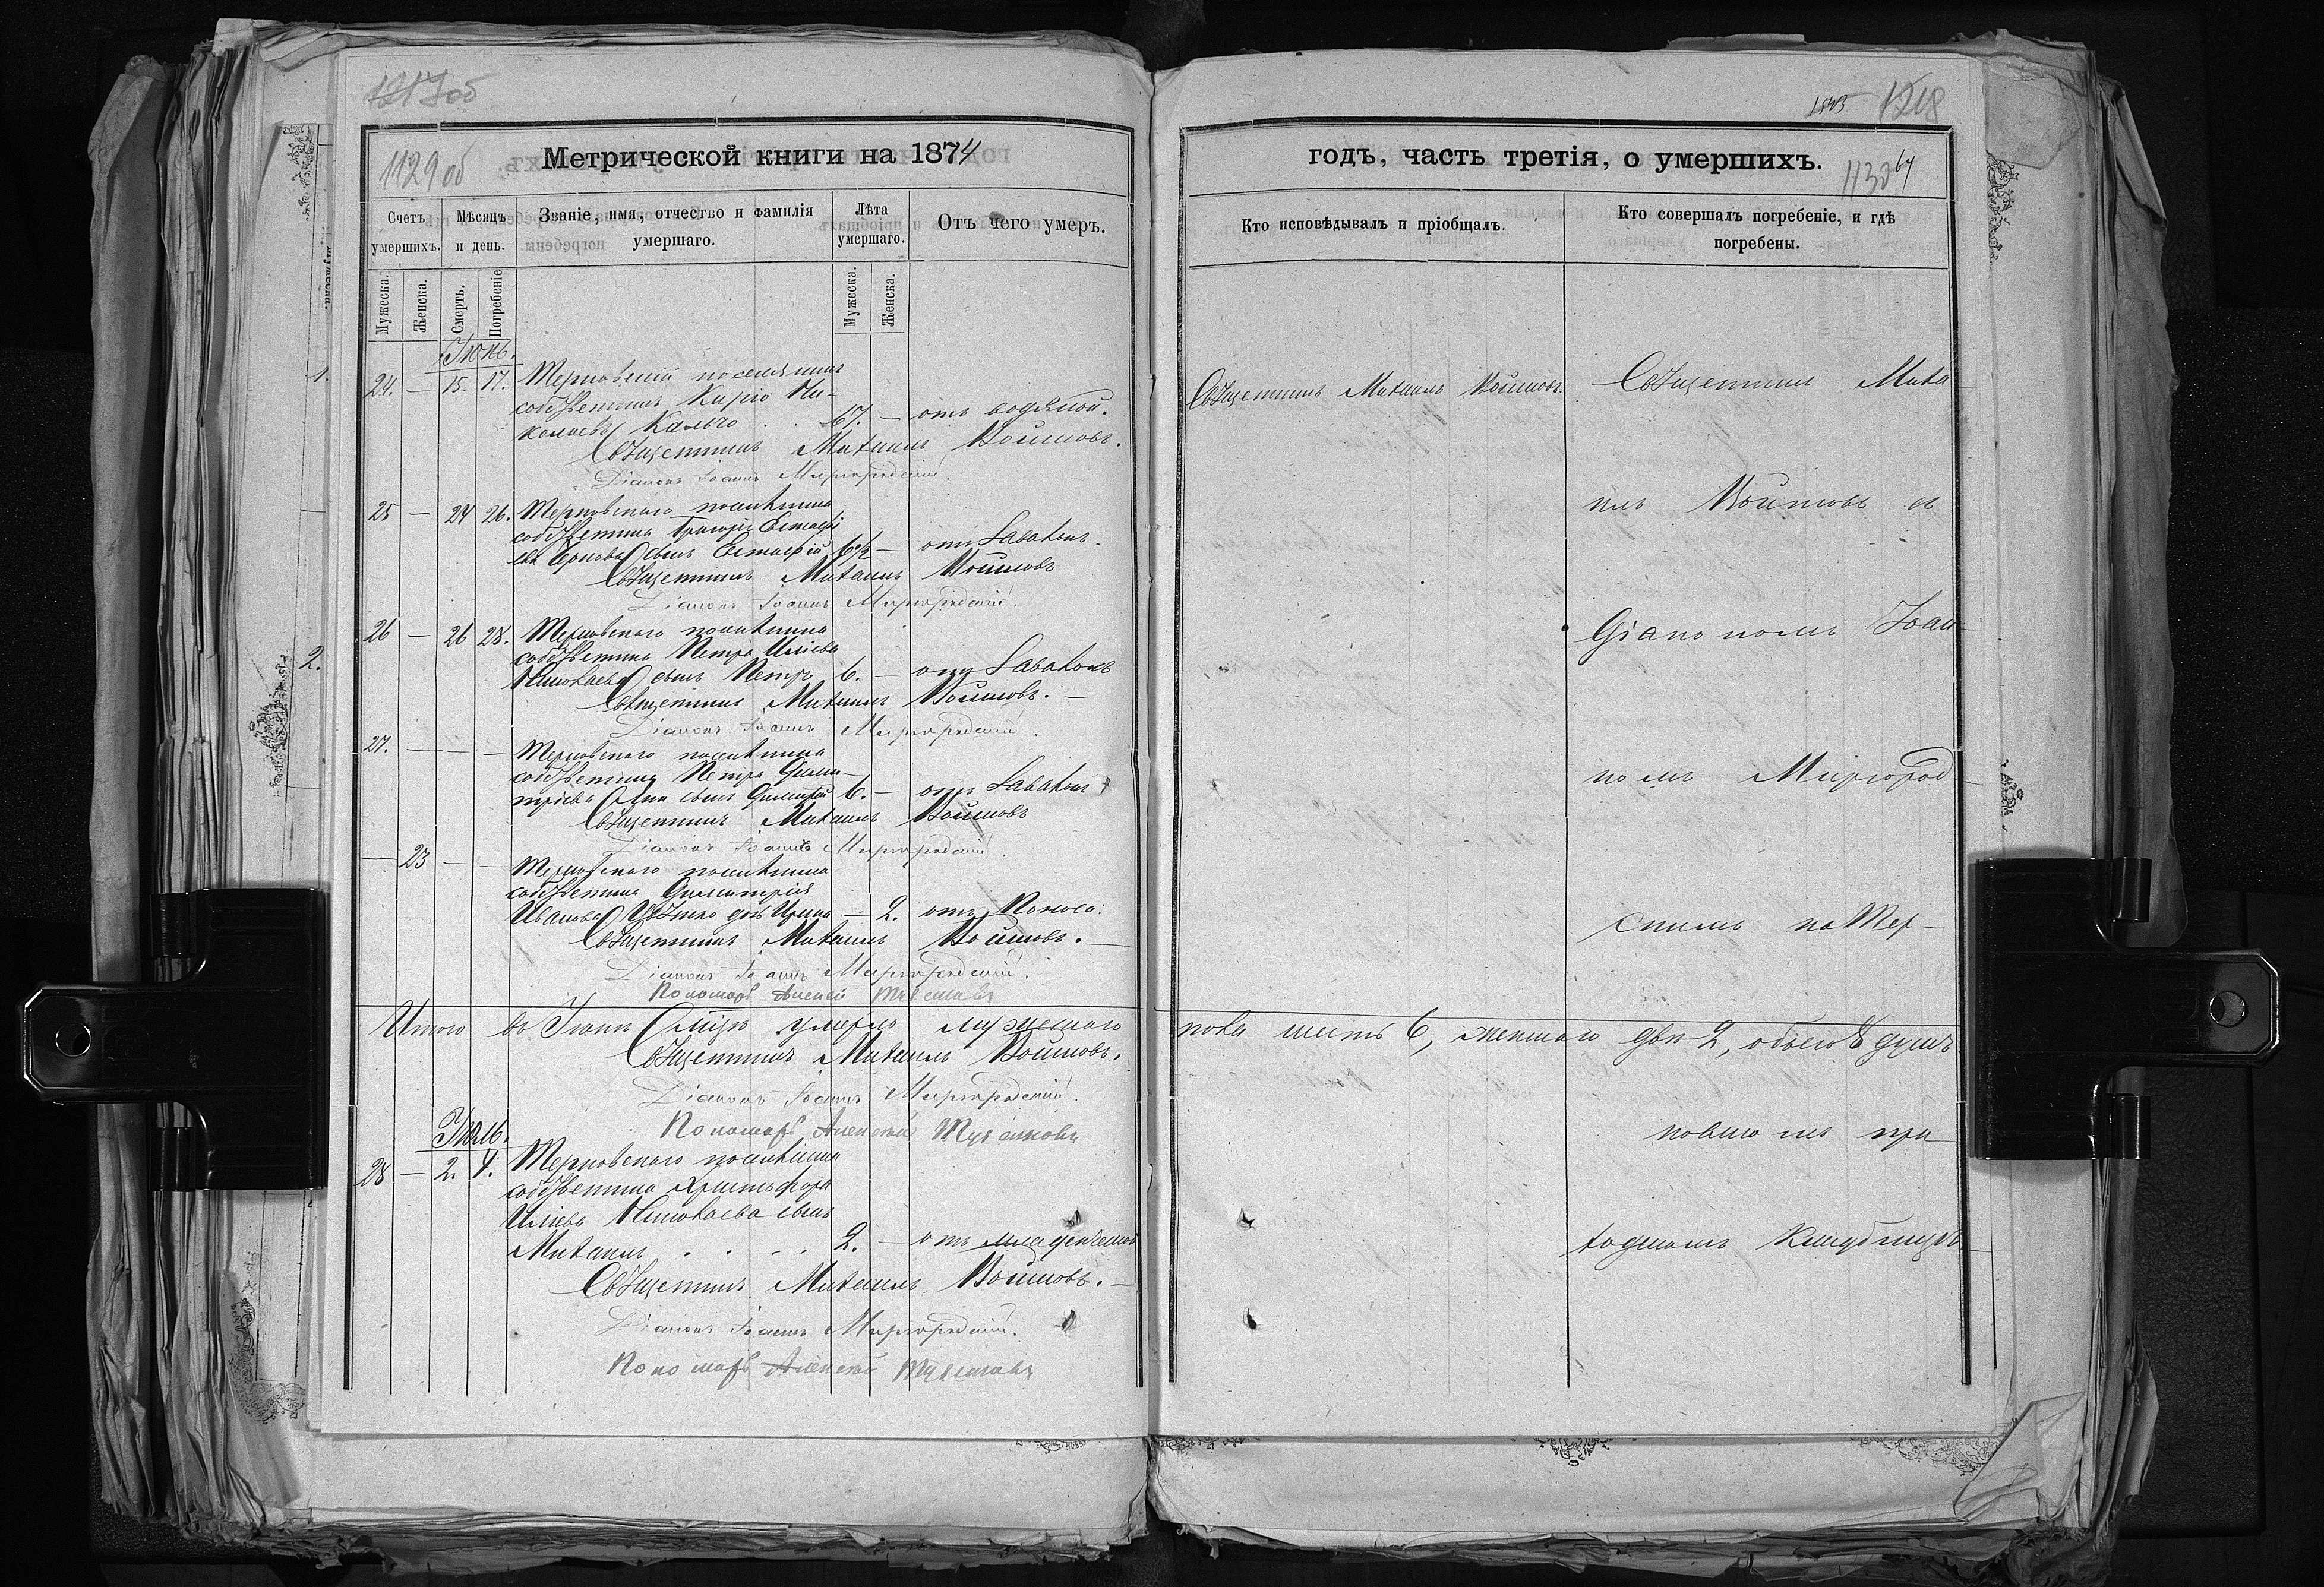 1217 об
1129 об
Метрической книги на 1874
Счетъ умершихъ.
Мѣсяцъ и день.
Званіе, имя, отчество и фамилія умершаго.
Лѣта умершаго.
Отъ чего умеръ.
Мужеска.
Женска.
Смерть.
Погребеніе
Мужеска.
Женска.
Іюнь.
24. — 15. 17. Терновскій поселянинъ
собственникъ Кирго Ни-
колаевъ Кальчо 67. — отъ водяной.
Священникъ Михаилъ Войтовъ.
Діаконъ Іоаннъ Миргородскій.
25 — 24 26. Терновскаго поселянина
собственника
сынъ Евстафій — отъ
Священникъ Михаилъ Войтовъ
Діаконъ Іоаннъ Миргородскій.
26 — 26 28. Терновскаго поселянина
собственника Петра Иліева
сынъ Петръ 6. — отъ
Священникъ Михаилъ Войтовъ. —
Діаконъ Іоаннъ Миргородскій.
27. — — — Терновскаго поселянина
собственника Петра Дими-
тріева сынъ Димитрій 6. — отъ
Священникъ Михаилъ Войтовъ
Діаконъ Іоаннъ Миргородскій.
— 23 — — Терновскаго поселянина
собственника Димитрія
Иванова дочь Ирина — 2. отъ Поноса.
Священникъ Михаилъ Войтовъ. —
Діаконъ Іоаннъ Миргородскій.
Пономарь Алексѣй
Итого въ Іюнѣ Мцѣ умерло мужескаго
Священникъ Михаилъ Войтовъ.
Діаконъ Іоаннъ Миргородскій.
Пономарь Алексѣй
Іюль.
28 — 2. 4. Терновскаго поселянина
собственника Христофора
Иліева сынъ
Михаилъ . . . . 2. — отъ
Священникъ Михаилъ Войтовъ. —
Діаконъ Іоаннъ Миргородскій.
Пономарь Алексѣй
1218
годъ, часть третія, о умершихъ.
1130
64
Кто исповѣдывалъ и пріобщалъ.
Кто совершалъ погребеніе, и гдѣ погребены.
Священникъ Михаилъ Войтовъ.
Священникъ Миха-
илъ Войтовъ съ
Діакономъ Іоан-
номъ Миргород-
скимъ на Тер-
пола шесть 6, женскаго два 2, обоего 8 душъ
новскомъ при-
ходскомъ кладбищѣ. —